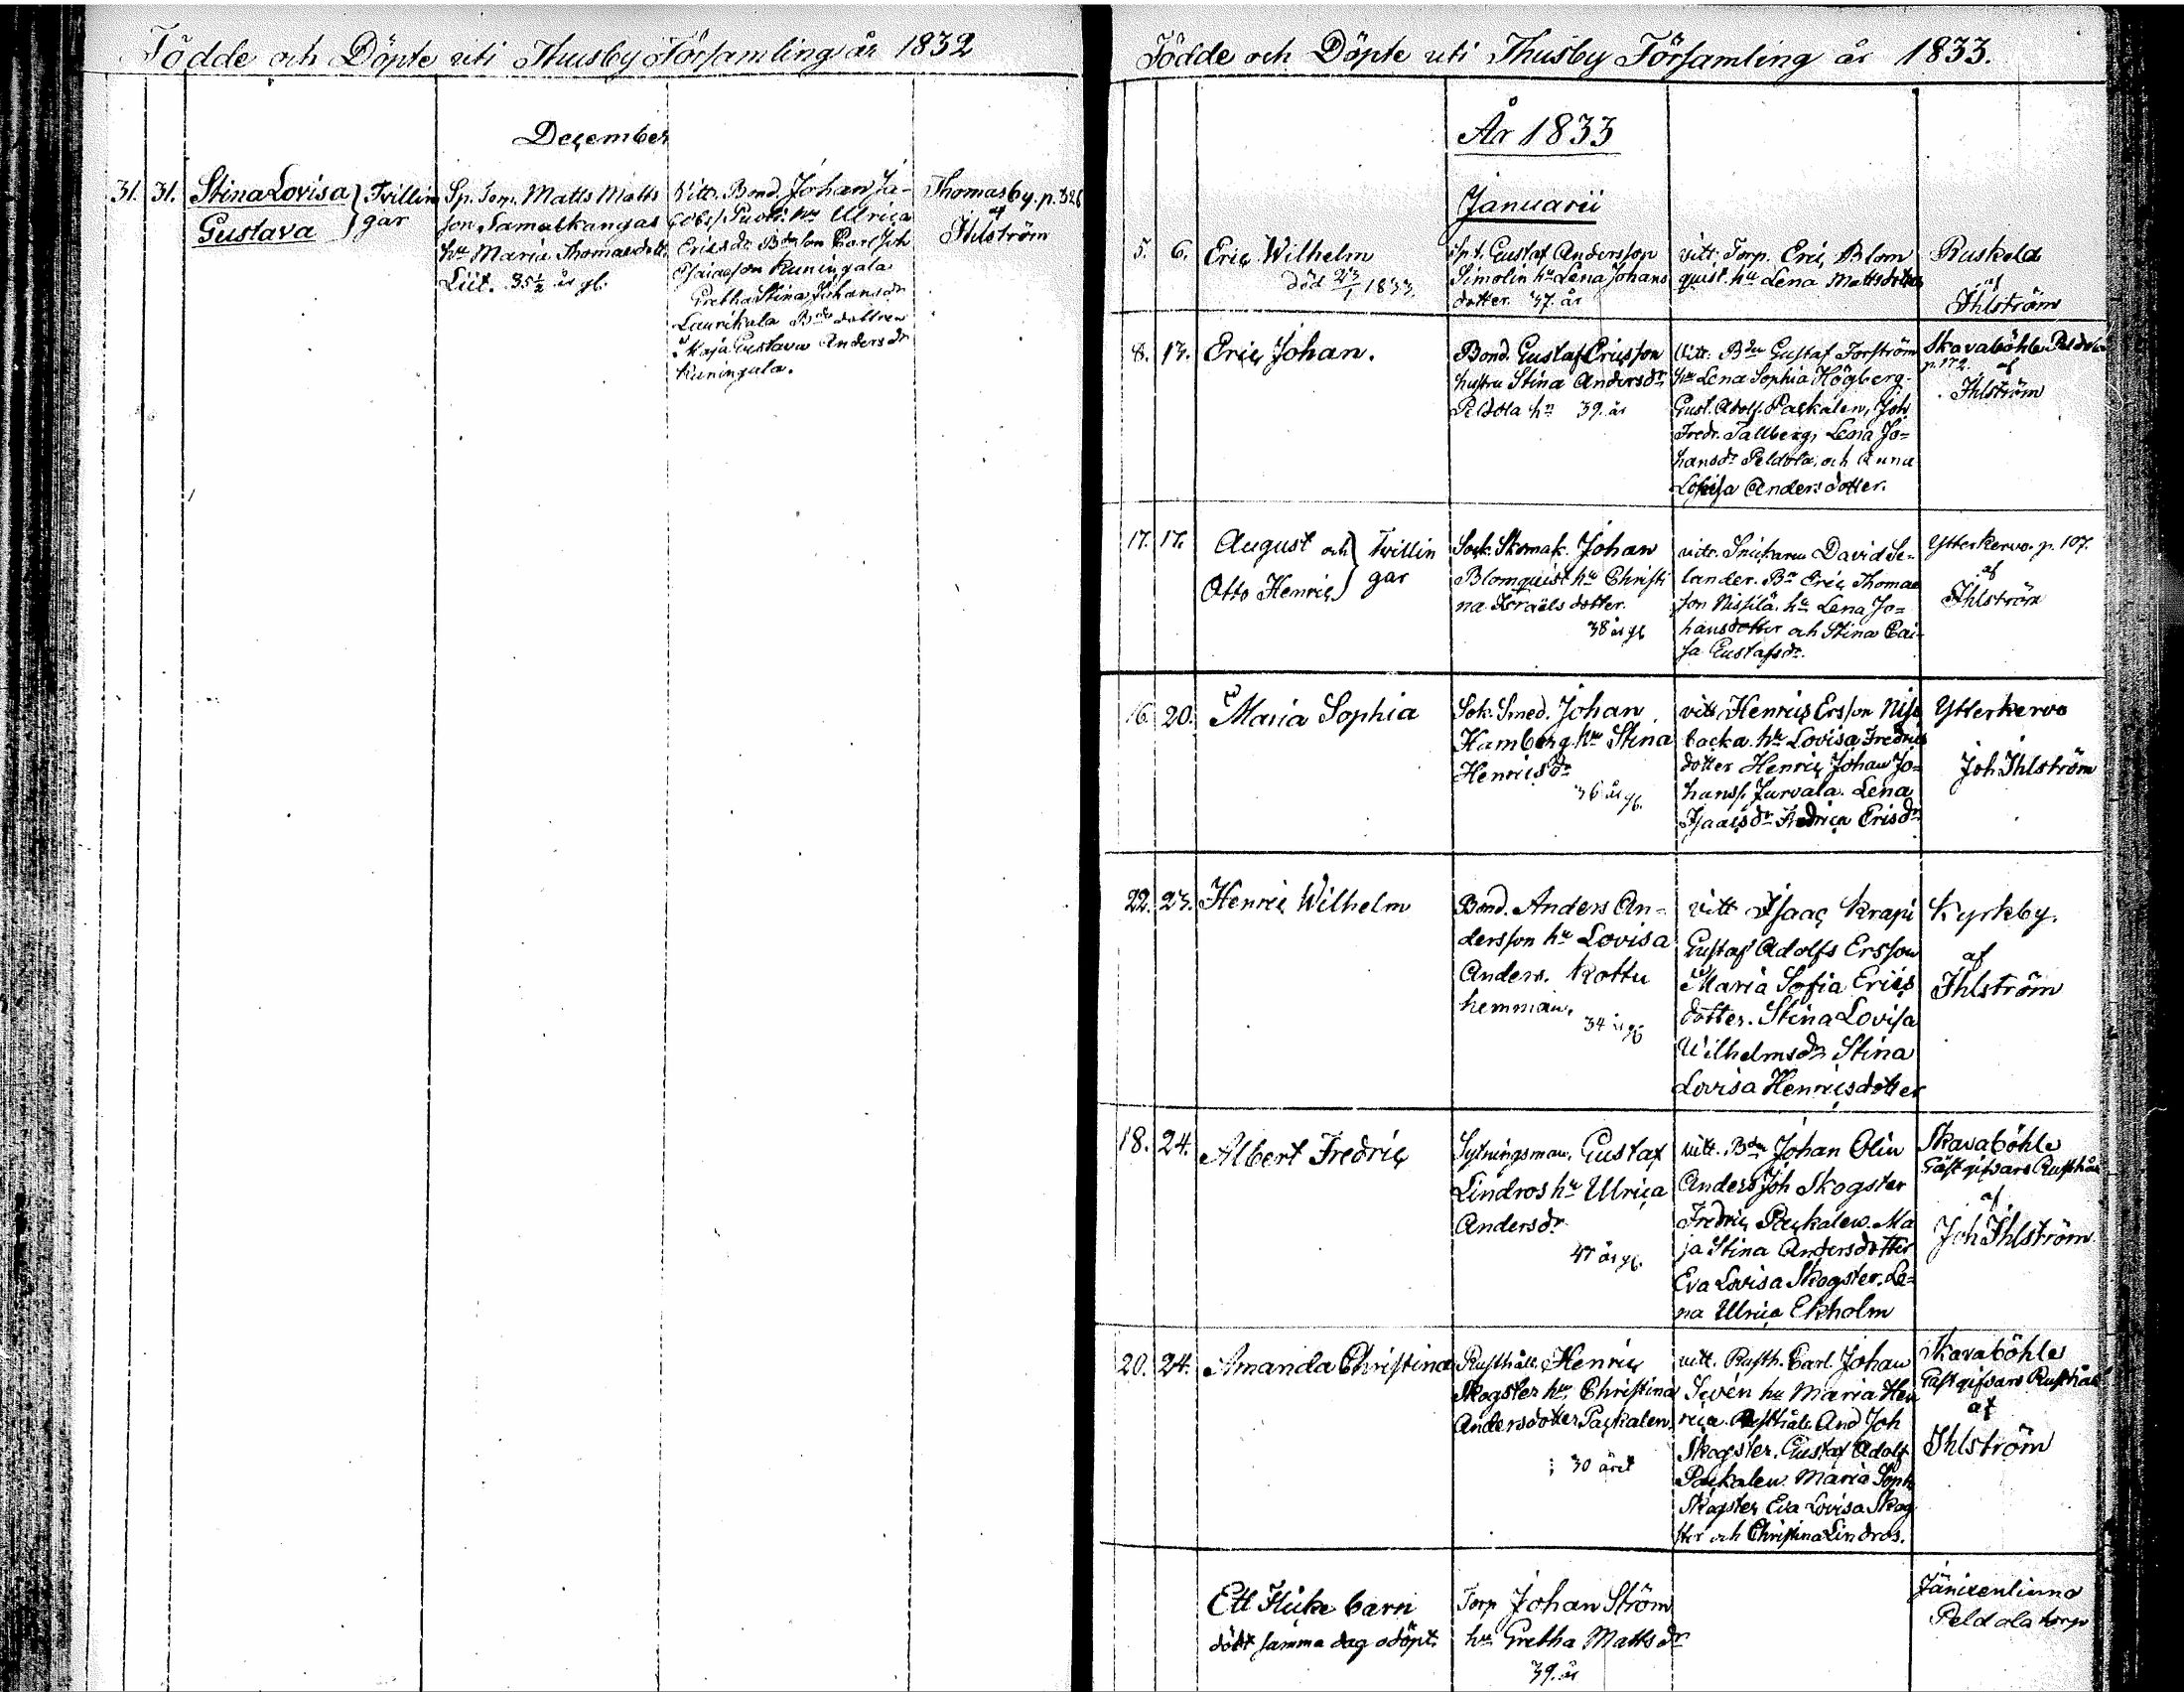 Födde och Döpte uti Thusby Församling år 1832
December
31. 31. Stina Lovisa } Tvillin
Gustava } gar
Sp. Torp. Matts Matts
son Samalkangas
hu Maria Thomasdotr
Liit. 35½ år gl.
Vitt. Bond. Johan Ja-
cobss. hu Ulrica
Ericsdr Bdeson Carl Joh
Isaacson Kuningala
Gretha Stina Johansdr
Laurikala Bde dottren
Maja Gustava Andersdr
Kuningala.
Thomasby. p. 326
af
Ihlström
Födde och Döpte uti Thusby Församling år 1833.
År 1833
Januarii
5. 6. Eric Wilhelm
död 23/1 1833.
Sp. t. Gustaf Andersson
Simolin hu Lena Johans
dotter. 37. år
vitt. Torp. Eric Blom
quist. hu Lena Mattsdotter
Ruskela
af
Ihlström
8. 13. Eric Johan.
Bond. Gustaf Ericsson
hustru Stina Andersdr
Peldola hn 39. år
Vitt. Bdn Gustaf Forström
hu Lena Sophia Högberg.
Gust. Adolf. Paçkalen, Joh
Fredr. Tallberg, Lena Jo=
hansdr Peldola, och Anna
Lovisa Andersdotter.
Skavaböhle Peldola
p. 172. af
Ihlström
17. 17. August och } Tvillin
Otto Henric } gar
Sock. Skomak. Johan
Blomquist hu Christi
na Israëlsdotter.
38 år gl
vitt. Snickaren David Se-
lander. Bn Eric Thomas
son Nissilä. hu Lena Jo=
hansdotter och Stina Cai-
sa Gustafsdr.
Ytterkervo. p. 107.
af
Ihlström
16. 20. Maria Sophia
Sok. Smed. Johan
Hamberg hu Stina
Henricsdr
36 år gl.
vitt Henric Ersson Niss
backa. hu Lovisa Fredrics
dotter Henric Johan Jo=
hanss. Jurvala. Lena
Isaacsdr Fredrica Ericsdr
Ytterkervo
Joh Ihlström
22. 23. Henric Wilhelm
Bond. Anders An=
dersson hu Lovisa
Anders. Kottu
hemman.
34 år gl
vitt Isaac Krapi
Gustaf Adolfs Ersson
Maria Sofia Erics
dotter. Stina Lovisa
Wilhelmsdr Stina
Lovisa Henricsdotter
Kyrkby.
af
Ihlström
18. 24. Albert Fredric
Sytningsman. Gustaf
Lindros hu Ulrica
Andersdr
47 år gl.
vitt. Bdn Johan Olin
Anders Joh Skogster
Fredric Paçkalen. Ma
ja Stina Andersdotter
Eva Lovisa Skogster. Le=
na Ulrica Ekholm
Skavaböhle
Gästgifvars Rusthåll
af
Joh Ihlström
20. 24. Amanda Christina
Rusthåll. Henric
Skogster hu Christina
Andersdotter Paçkalen.
30 året
vitt. Rusth. Carl Johan
Svén hu Maria Hen
rica. Rusthåll. And Joh
Skogster. Gustaf Adolf
Paçkalen. Maria Soph
Skogster Eva Lovisa Skog
ster och Christina Lindros.
Skavaböhle
Gästgifvars Rusthåll
af
Ihlström
Ett Flicke barn
dödt samma dag odöpt.
Torp Johan Ström
hu Gretha Mattsdr
39. år
Jänixenlinna
Peldola torp